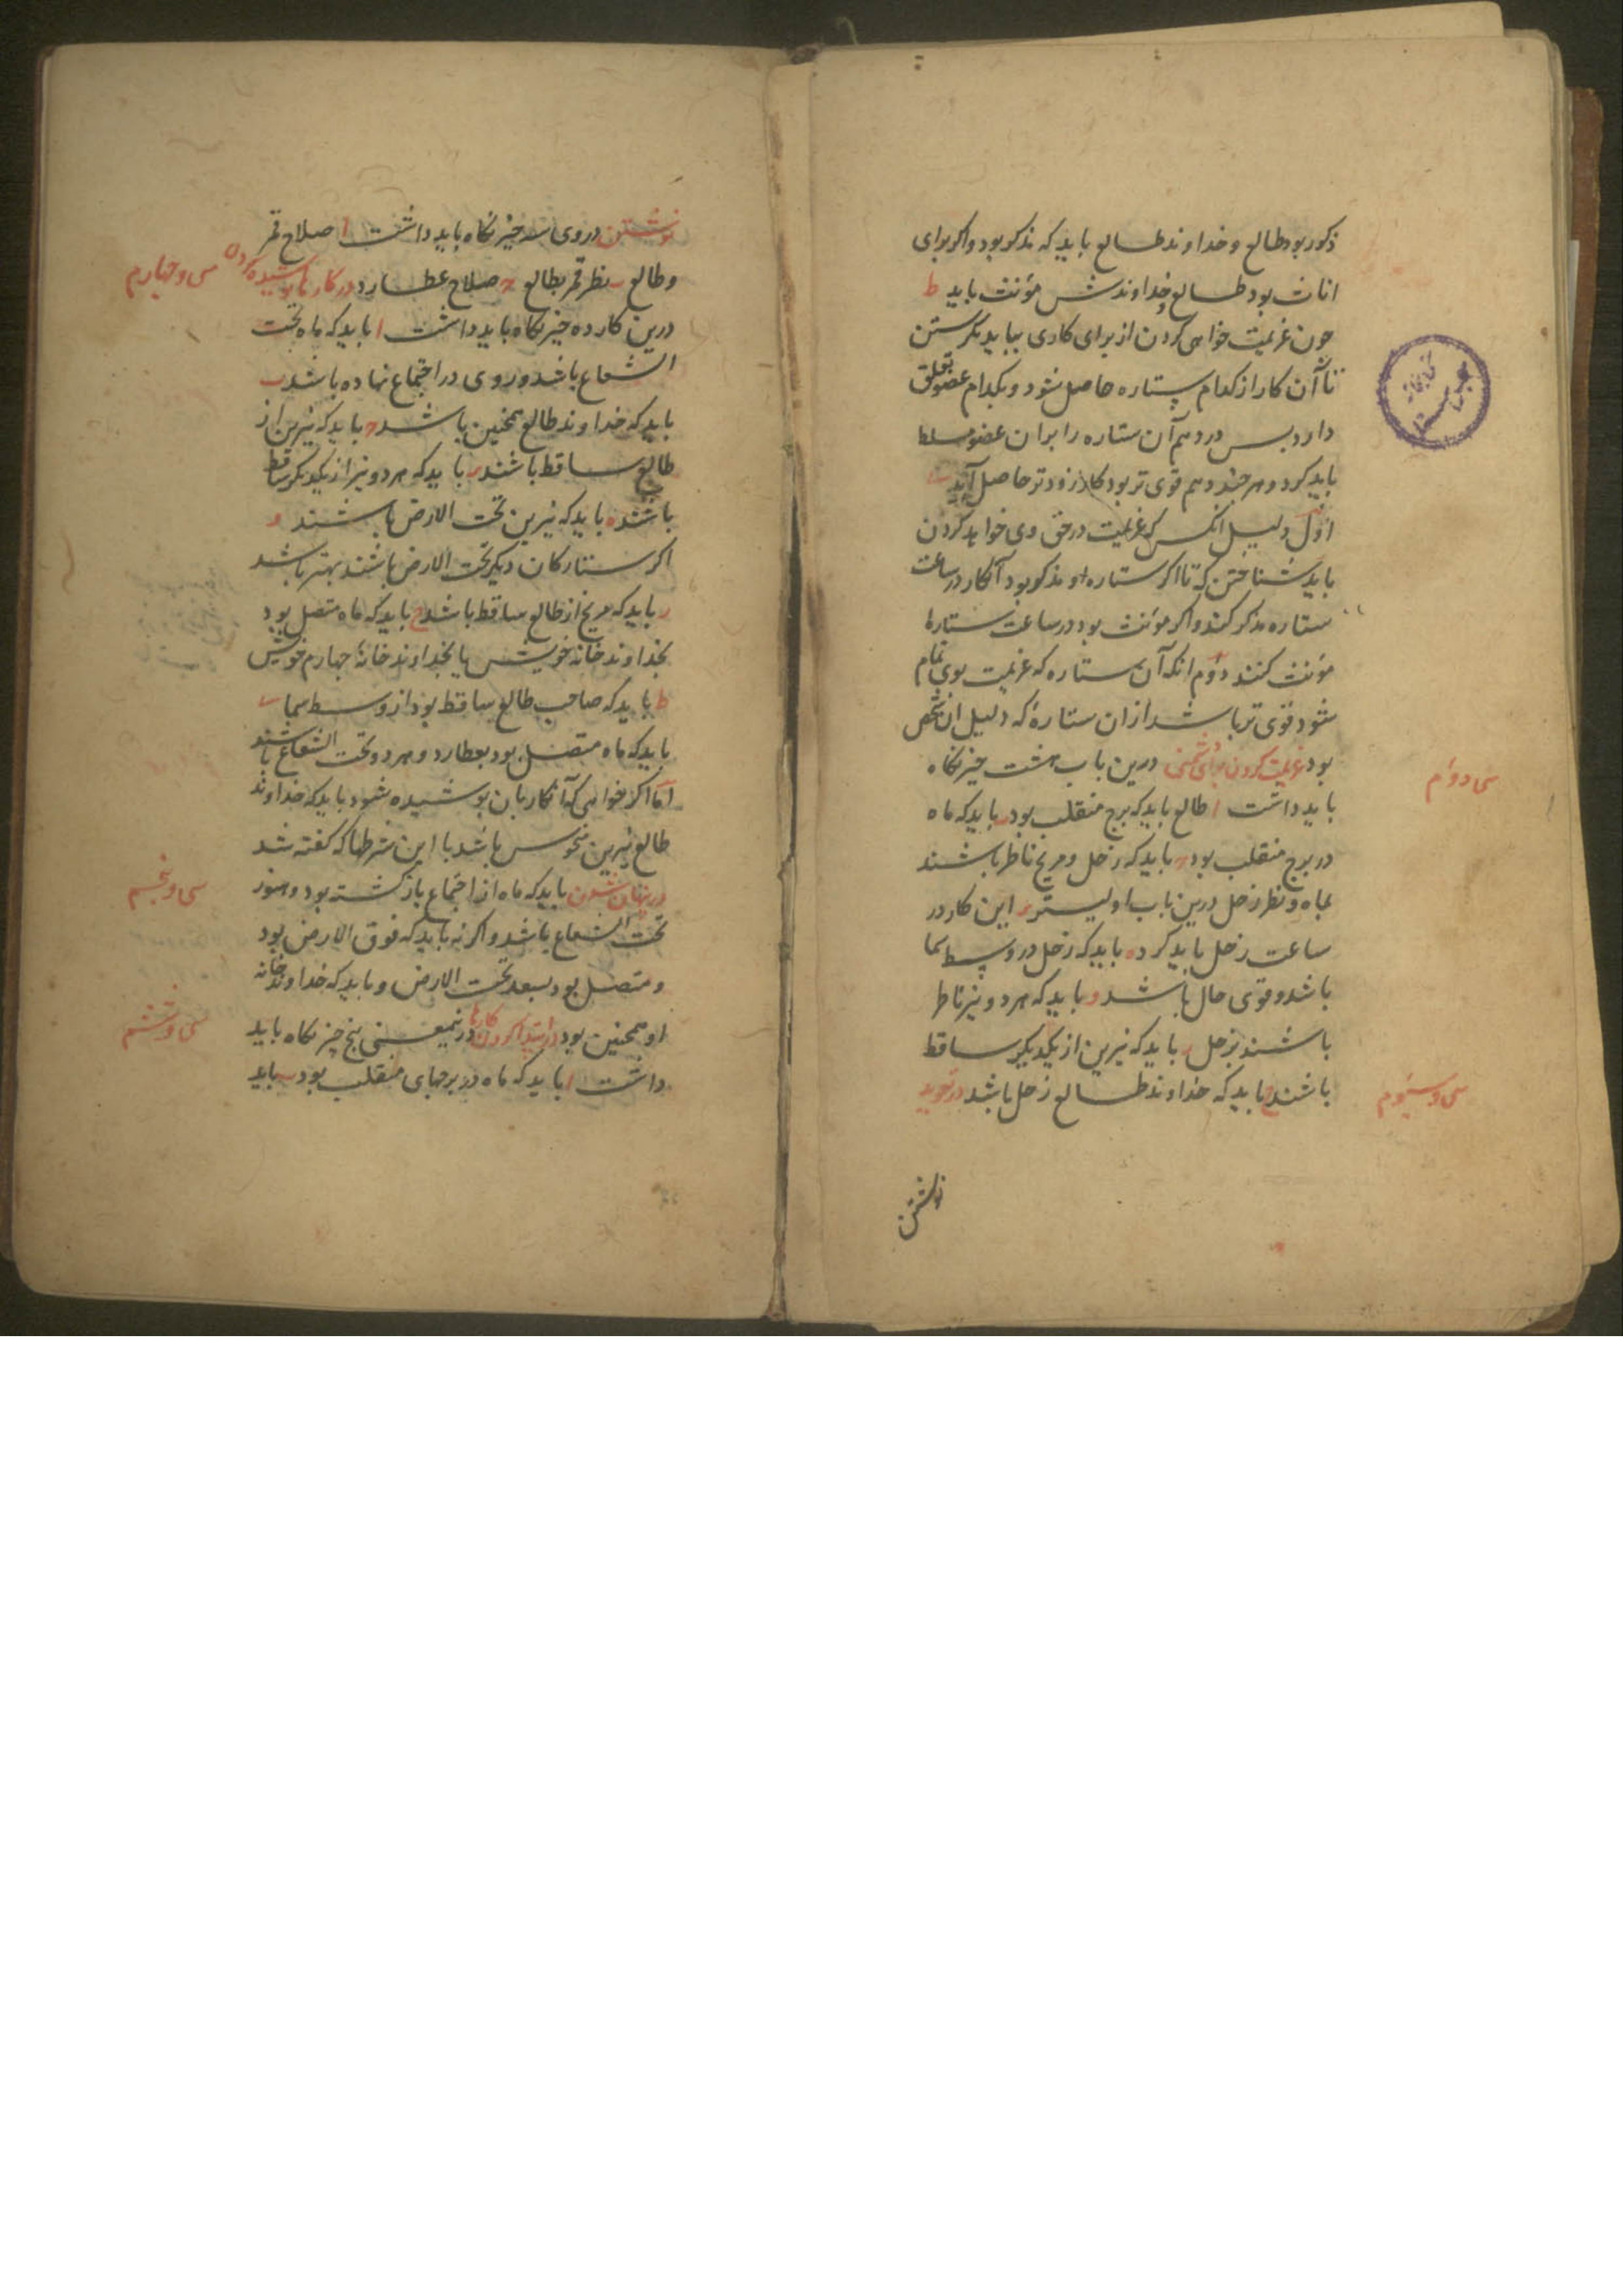 ذکور بود طالع و خداوند طالع باید که مذکر بود و اکر برای
اناث بود طالع و خداوندش مؤنث باید ط
جون عزیمت خواهی کردن از برای کاری بباید نکرستن
تا آن کار از کدام ستاره حاصل شود و بکدام عضو تعلق
دارد بس در دهم آن ستاره را بران عضو مسلط
باید کرد و هر جند دهم قوی تر بود کار زودتر حاصل آید
اول دلیل انکس که عزیمت در حق وی خواهد کردن
باید شناختن که تا اکر ستاره او مذکر بود آن کار در ساعت
ستاره مذکر کنند و اکر مؤنث بود در ساعت ستارهٔ
مؤنث کنند دوم انکه آن ستاره که عزیمت بوی تمام
شود قوی تر باشد از ان ستارهٔ که دلیل ان شخص
بود عزیمت کردن برای دشمنی درین باب هشت جیز نکاه
سی دوم
باید داشت ا طالع باید که برج منقلب بود ب باید که ماه
در برج منقلب بود ج باید که زحل و مریخ ناظر باشند
بماه و نظر زحل درین باب اولیتر این کار در
ساعت زحل باید کرد ه باید که زحل در وسط سما
باشد و قوی حال باشد و باید که هر دو نیر ناظر
باشند بزحل ز باید که نیرین از یکدیکر ساقط
باشند ح باید که خداوند طالع زحل باشد در تعوید
سی و سیوم
نوشتن
نوشتن در وی سه جیز نکاه باید داشت ا صلاح قمر
و طالع ب نظر قمر بطالع ج صلاح عطارد در کارها پوشیده کردن
سی و جهارم
درین کار ده جیز نکاه باید داشت ا باید که ماه تحت
الشعاع باشد و روی در اجتماع نهاده باشد ب
باید که خداوند طالع همجنین باشد ج باید که نیرین از
طالع ساقط باشند د باید که هر دو نیر از یکدیکر ساقط
باشند ه باید که نیرین تحت الارض باشند و
اکر ستارکان دیکر تحت الارض باشند بهتر باشد
ز باید که مریخ از طالع ساقط باشد ح باید که ماه متصل بود
بخداوند خانه خویش یا بخداوند خانهٔ جهارم خویش
ط باید که صاحب طالع ساقط بود از وسط سما ی
باید که ماه متصل بود بعطارد و هر دو تحت الشعاع باشند
اما اکر خواهی که آن کار بان پوشیده شود باید که خداوند
طالع نیرین منحوس باشد با این شرطها که کفته شد
در پنهان شدن باید که ماه از اجتماع بازکشته بود و هنوز
سی و پنجم
تحت الشعاع باشد و اکر نه باید که فوق الارض بود
و متصل بود بسعد تحت الارض و باید که خداوند خانه
او همجنین بود در ابتدا کردن کارها درینمعنی پنج جیز نکاه باید
سی و ششم
داشت ا باید که ماه در برجهای منقلب بود ب باید